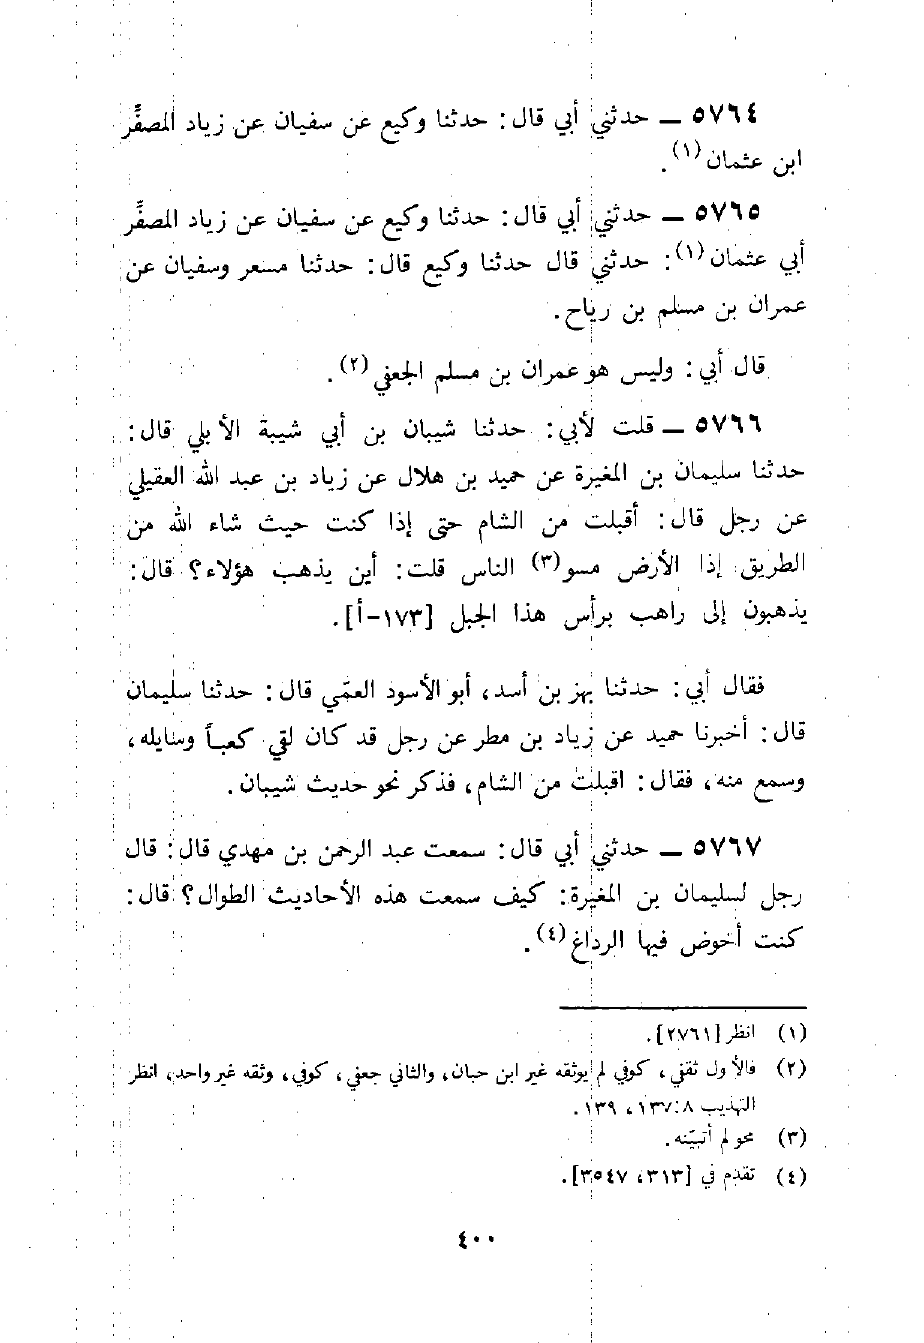 ٥٧٦٤ ــ حدثني أبي قال: حدثنا وكيع عن سفيان عن زياد المصفَّر
ابن عثمان(١).
٥٧٦٥ ــ حدثني أبي قال: حدثنا وكيع عن سفيان عن زياد المصفَّر
أبي عثمان(١): حدثني قال حدثنا وكيع قال: حدثنا مسعر وسفيان عن
عمران بن مسلم بن رياح.
قال أبي: وليس هو عمران بن مسلم الجعفي(٢).
٥٧٦٦ ــ قلت لأبي: حدثنا شيبان بن أبي شيبة الأبلي قال:
حدثنا سليمان بن المغيرة عن حميد بن هلال عن زياد بن عبد الله العقيلي
عن رجل قال: أقبلت من الشام حتى إذا كنت حيث شاء الله من
الطريق إذا الأرض مسو(٣) الناس قلت: أين يذهب هؤلاء؟ قال:
يذهبون إلى راهب برأس هذا الجبل [١٧٣-أ].
فقال أبي: حدثنا بهز بن أسد، أبو الأسود العمّي قال: حدثنا سليمان
قال: أخبرنا حميد عن زياد بن مطر عن رجل قد كان لقي كعباً وسايله،
وسمع منه، فقال: اقبلت من الشام، فذكر نحو حديث شيبان.
٥٧٦٧ ــ حدثني أبي قال: سمعت عبد الرحمن بن مهدي قال: قال
رجل لسليمان بن المغيرة: كيف سمعت هذه الأحاديث الطوال؟ قال:
كنت أخوض فيها الرداغ(٤).
(١) انظر [٢٧٦١].
(٢) فالأول ثقفي، كوفي لم يوثقه غير ابن حبان، والثاني جعفي، كوفي، وثقه غير واحد، انظر
التهذيب ٨: ١٣٧، ١٣٩.
(٣) محو لم أتبيّنه.
(٤) تقدم في [٣١٣، ٣٥٤٧].
٤٠٠